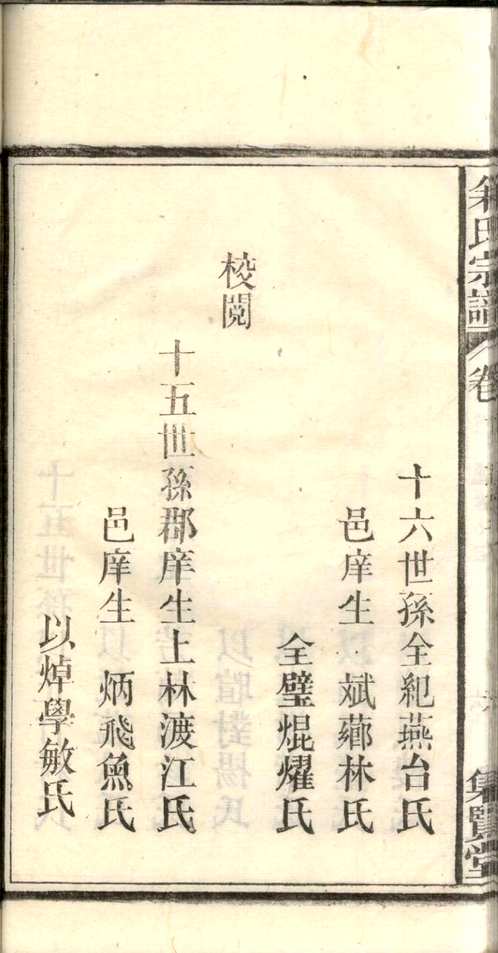 氏宗譜 卷
集賢堂
十六世孫全紀燕台氏
邑庠生 斌薌林氏
全璧焜燿氏
校閱
十五世孫郡庠生上林渡江氏
邑庠生 炳飛魚氏
以焯學敏氏